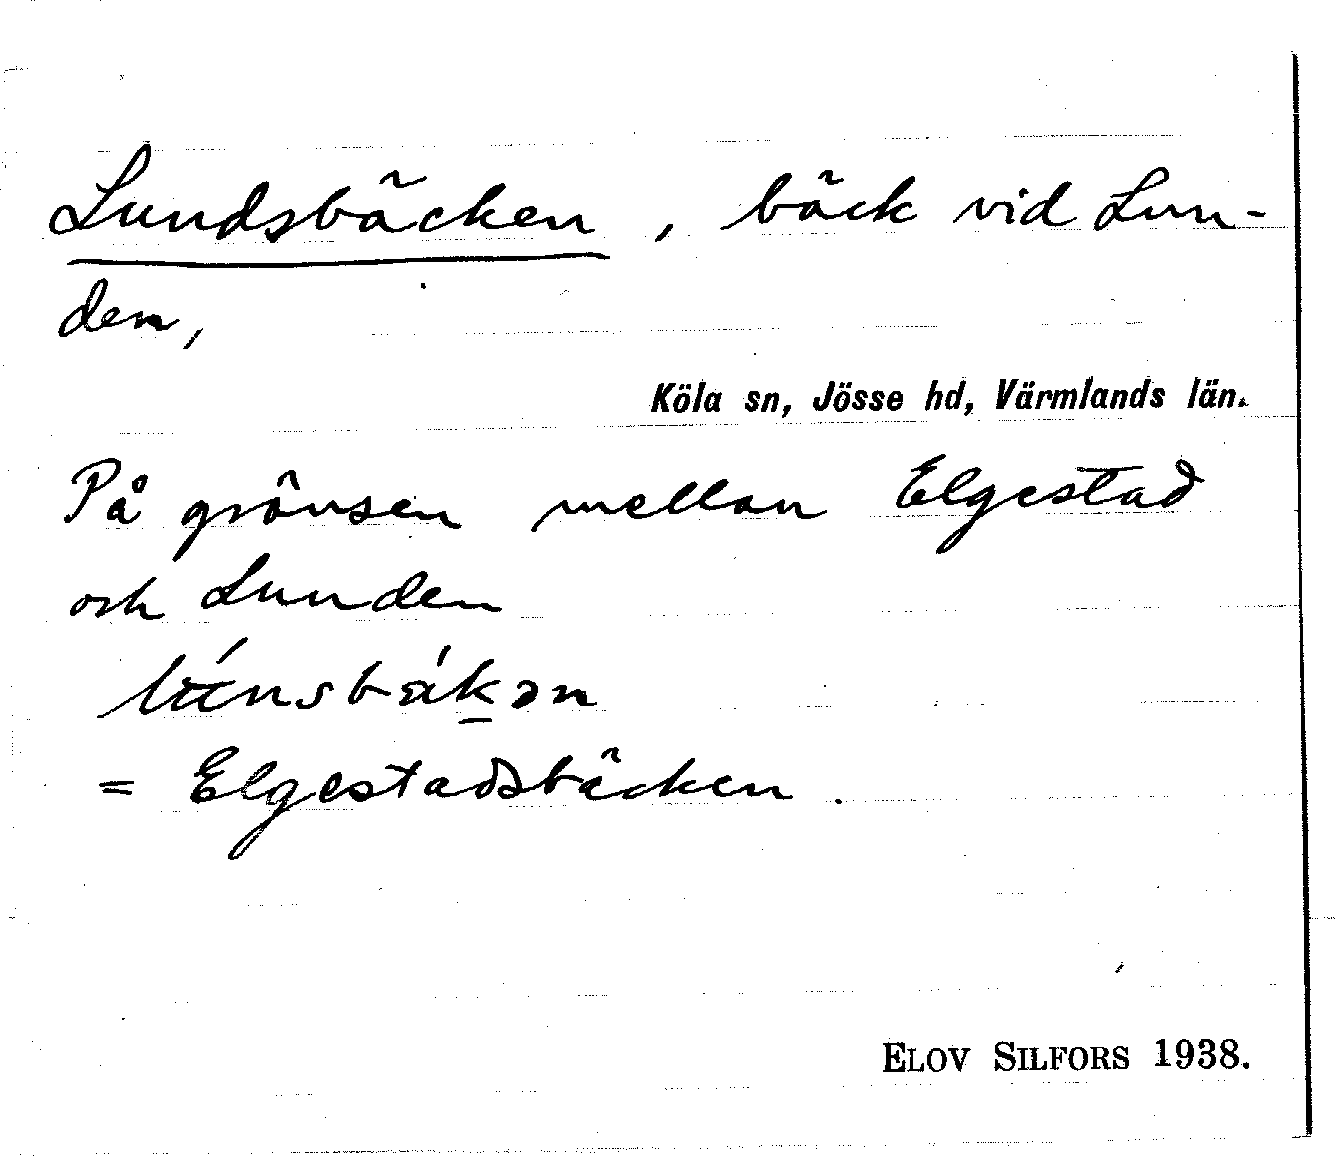 Lundsbäcken, bäck vid Lun-
den,
Köla sn, Jösse hd, Värmlands län.
På gränsen mellan Elgestad
och Lunden
= Elgestadsbäcken.
ELOV SILFORS 1938.